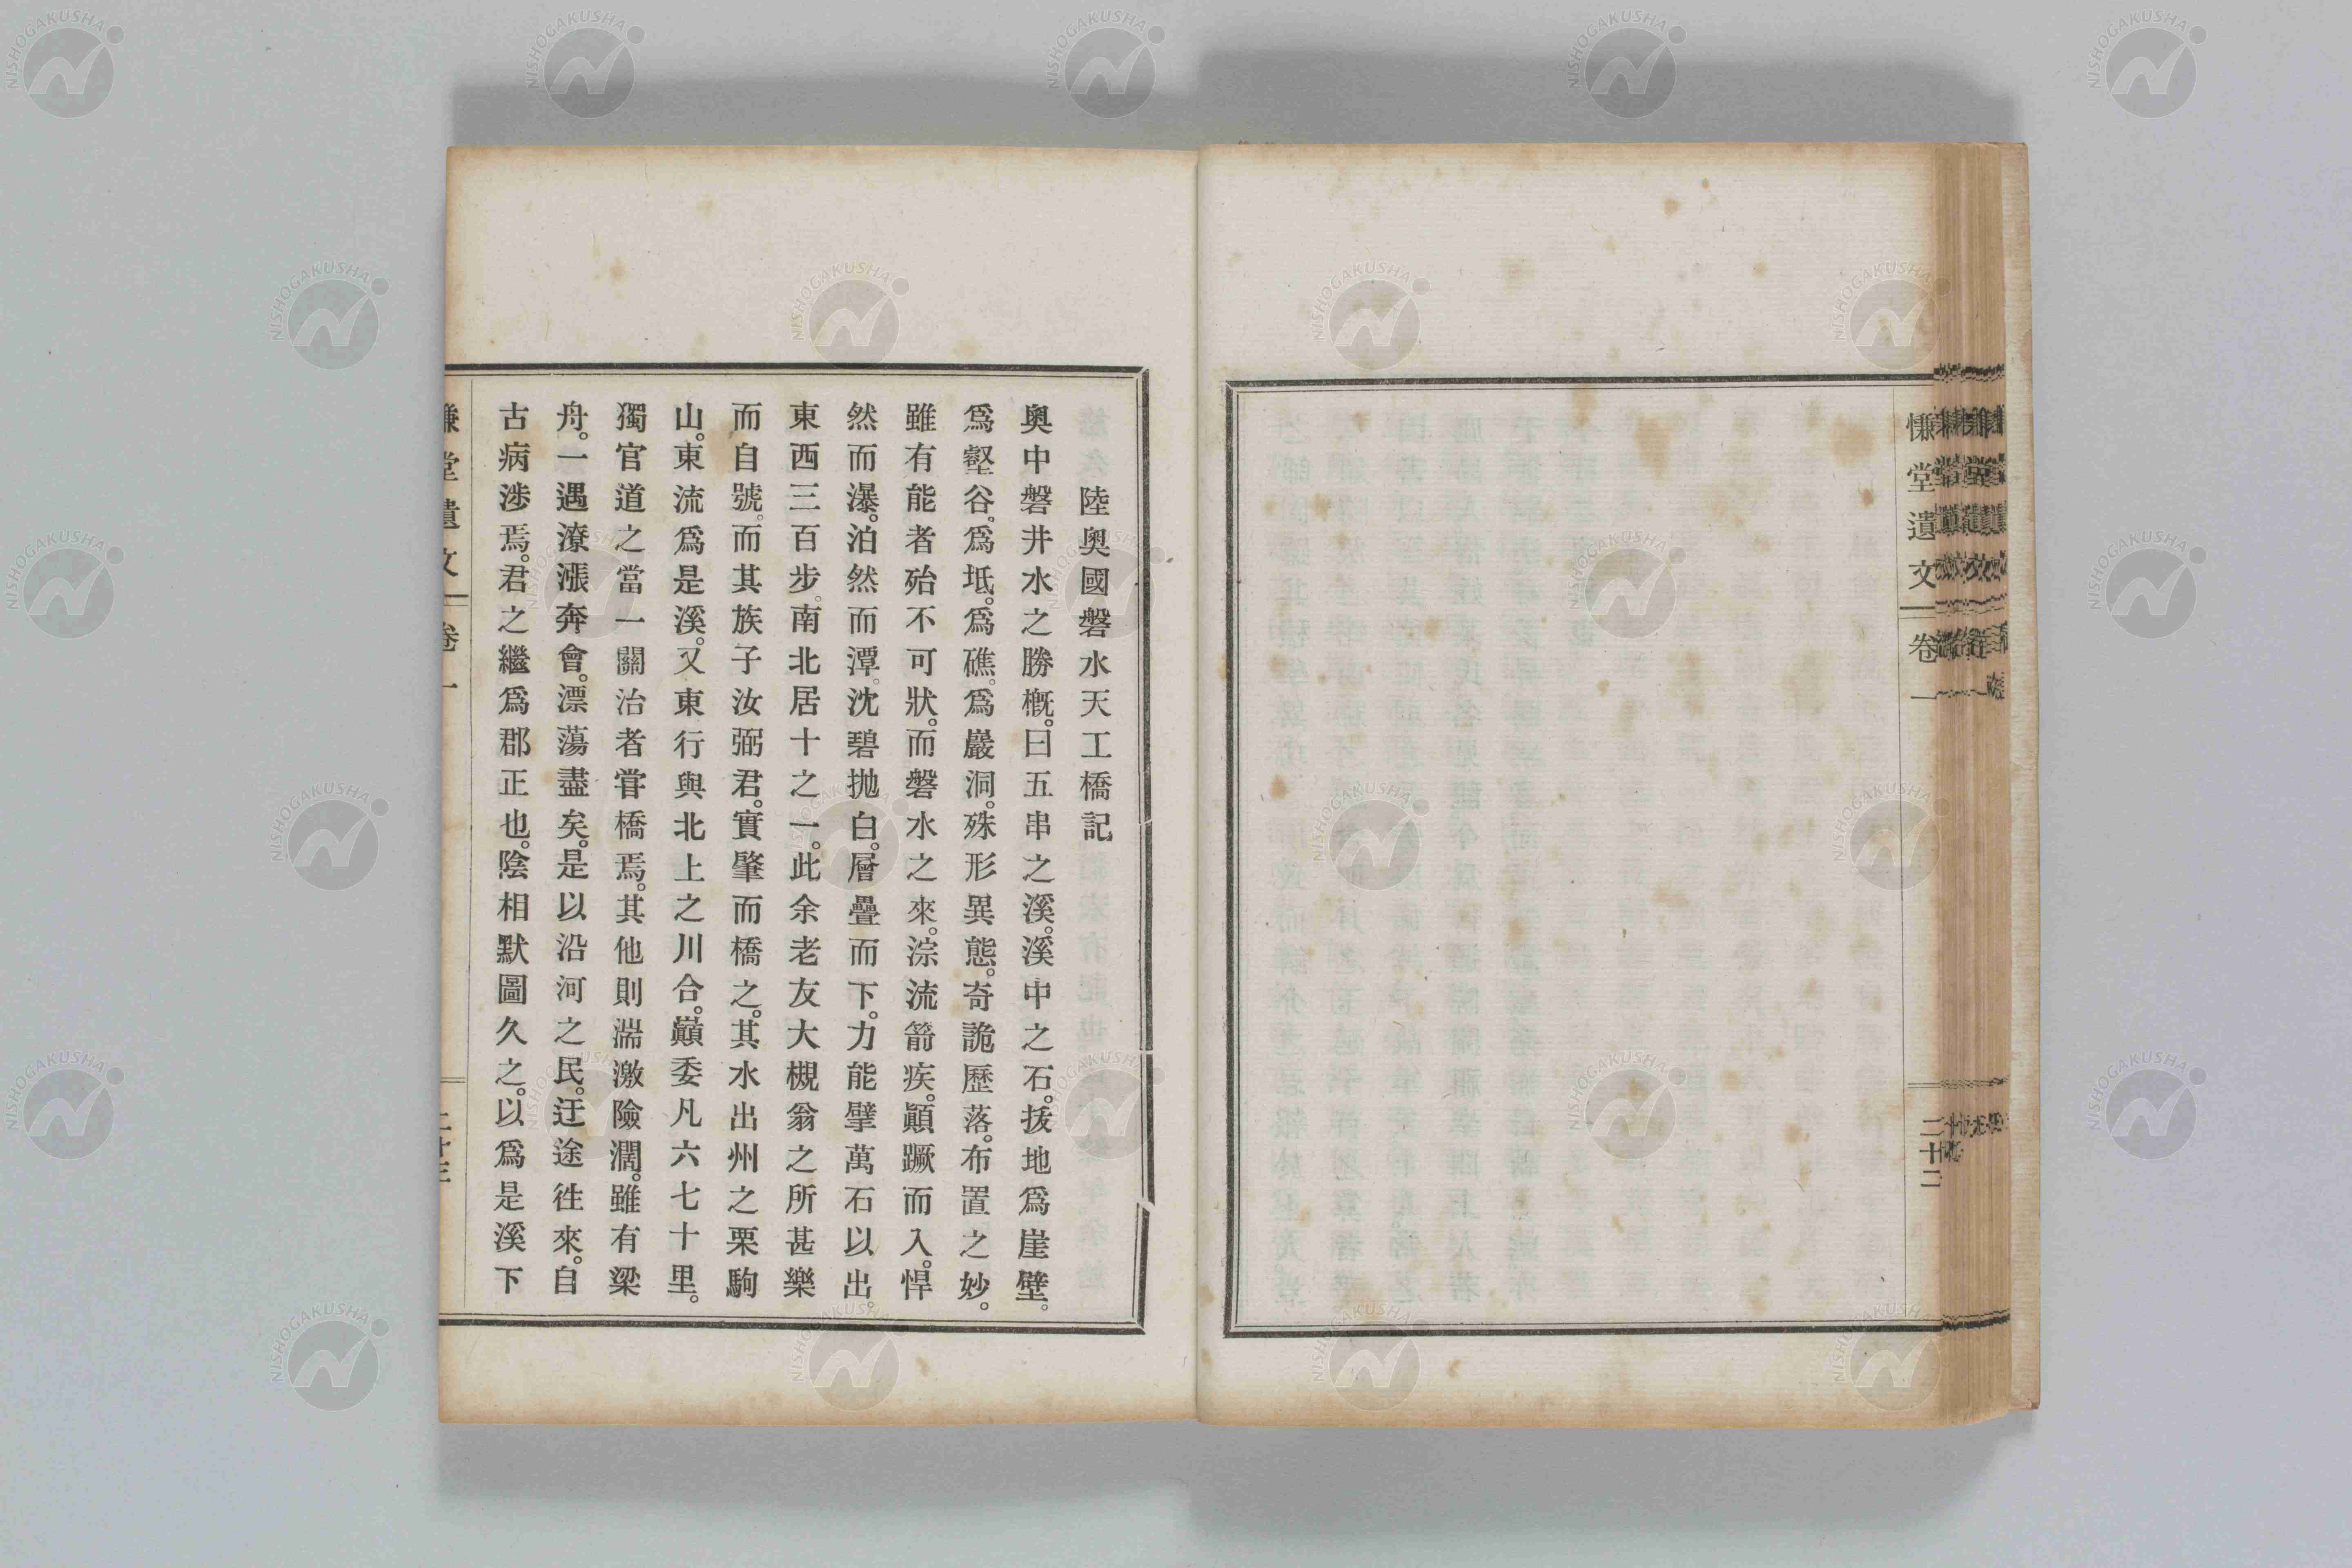 慊堂遺文 卷一 二十二
陸奧國磐水天工橋記
奧中磐井水之勝槪。曰五串之溪。溪中之石。拔地爲崖壁。
爲壑谷。爲坻。爲礁。爲巖洞。殊形異態。奇詭歷落。布置之妙。
雖有能者殆不可狀。而磐水之來。淙流箭疾。顚蹶而入。悍
然而瀑。泊然而潭。沈碧拋白。層疊而下。力能擘萬石以出。
東西三百步。南北居十之一。此余老友大槻翁之所甚樂
而自號。而其族子汝弼君。實肇而橋之。其水出州之栗駒
山。東流爲是溪。又東行與北上之川合。巓委凡六七十里。
獨官道之當一關治者甞橋焉。其他則湍激險濶。雖有梁
舟。一遇潦漲奔會。漂蕩盡矣。是以沿河之民。迂途往來。自
古病涉焉。君之繼爲郡正也。陰相默圖久之。以爲是溪下
NISHOGAKUSHA